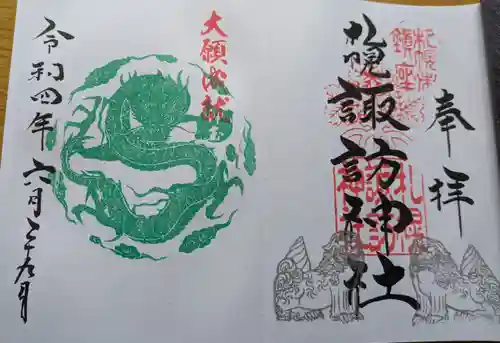 奉拝
札幌市
鎮座
札幌諏訪神社
大願成就
令和四年
六月二十九日